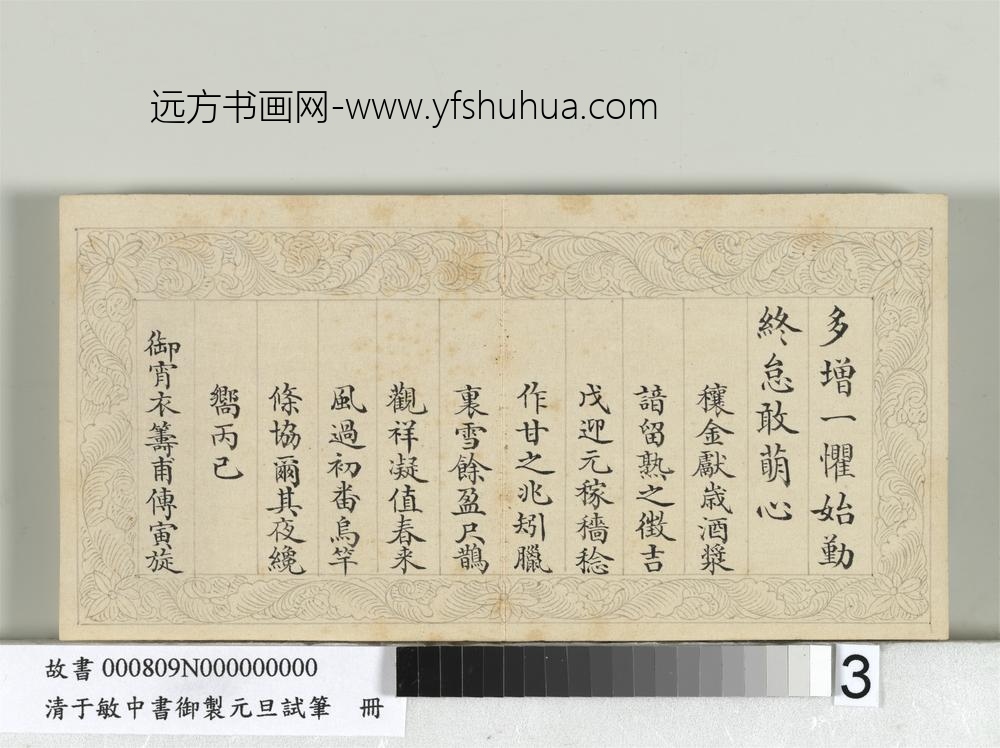 远方书画网-www.yfshuhua.com
多增一懼始勤
終怠敢萌心
穰金獻歳酒漿
諳留熟之徴吉
戊迎元稼穡稔
作甘之兆矧臘
裏雪餘盈尺鵲
觀祥凝值春来
風過初番烏竿
條協爾其夜纔
嚮丙已
御宵衣籌甫傳寅旋
故書 000809N000000000
清于敏中書御製元旦試筆 冊
3